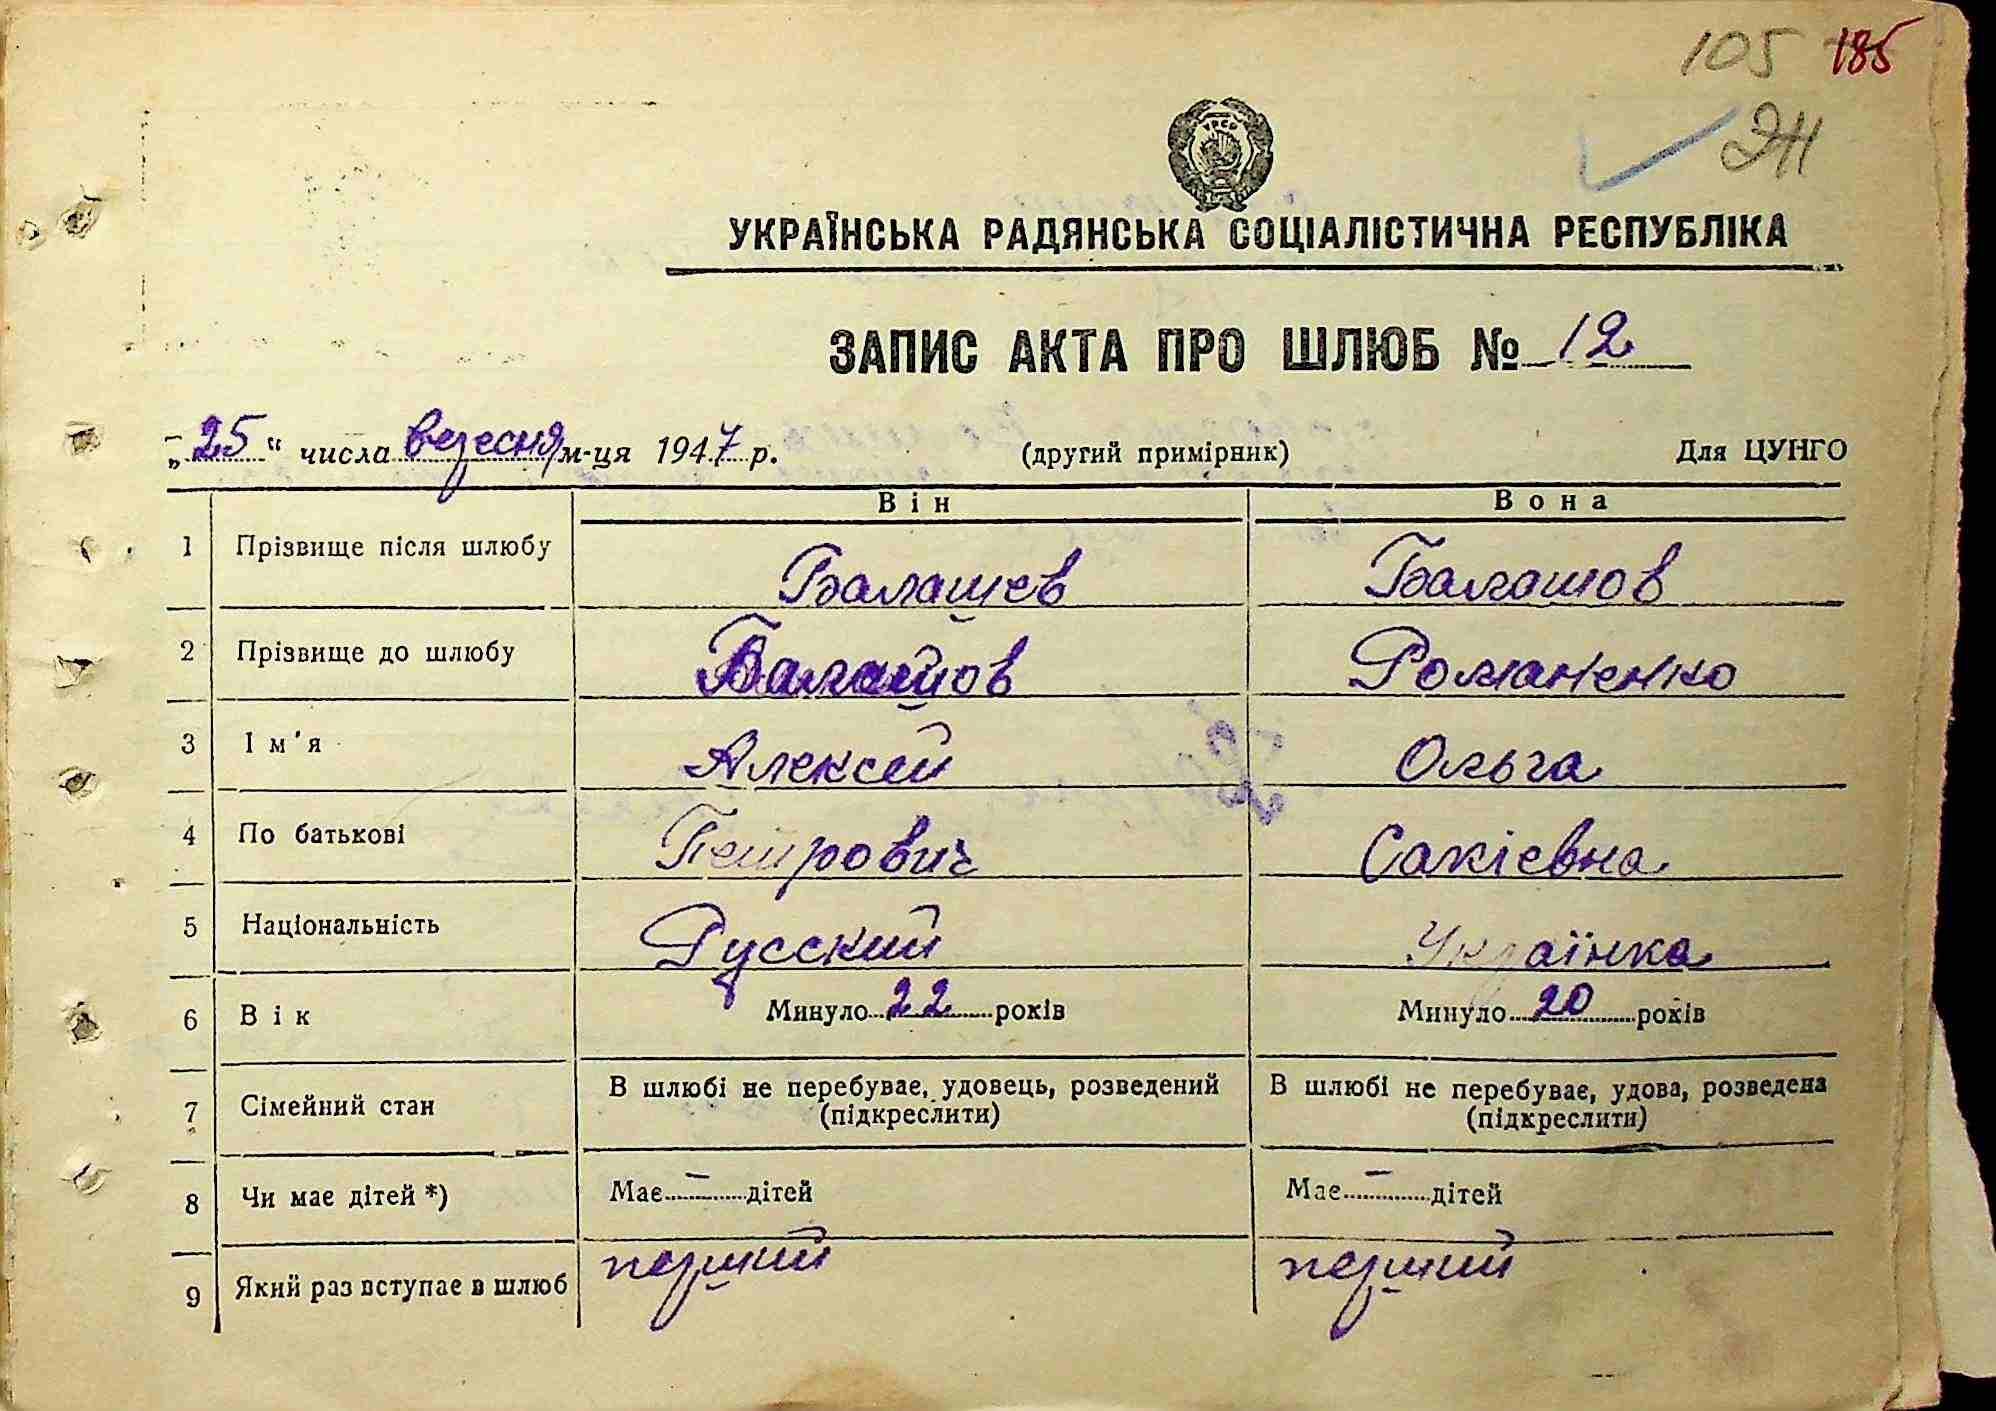 105 185
ЭН
УРСР
УКРАЇНСЬКА РАДЯНСЬКА СОЦІАЛІСТИЧНА РЕСПУБЛІКА
ЗАПИС АКТА ПРО ШЛЮБ № 12
„25“ числа вересня м-ця 1947 р. (другий примірник) Для ЦУНГО
Він Вона
1 Прізвище після шлюбу Балашев Балашов
2 Прізвище до шлюбу Балашов Романенко
3 Ім'я Алексей Ольга
4 По батькові Петрович Сакієвна
5 Національність Русский Українка
6 Вік Минуло 22 років Минуло 20 років
7 Сімейний стан В шлюбі не перебуває, удовець, розведений (підкреслити) В шлюбі не перебуває, удова, розведена (підкреслити)
8 Чи має дітей *) Має — дітей Має — дітей
9 Який раз вступає в шлюб перший перший